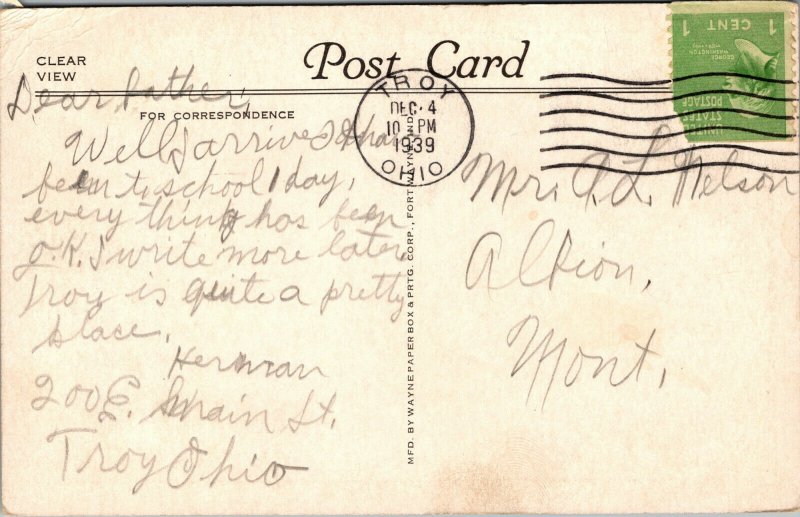 CLEAR
VIEW
Post Card
FOR CORRESPONDENCE
TROY
DEC. 4
10 PM
1939
OHIO
1 CENT 1
GEORGE
WASHINGTON
UNITED
STATES
POSTAGE
Dear Father,
Well I arrived & have
been to school 1 day,
every thing has been
O.K. I write more later.
Troy is quite a pretty
place.
Herman
200 E. Main St.
Troy Ohio
MFD. BY WAYNE PAPER BOX & PRTG. CORP., FORT WAYNE, IND.
Mr. A. L. Nelson
Albion,
Mont.